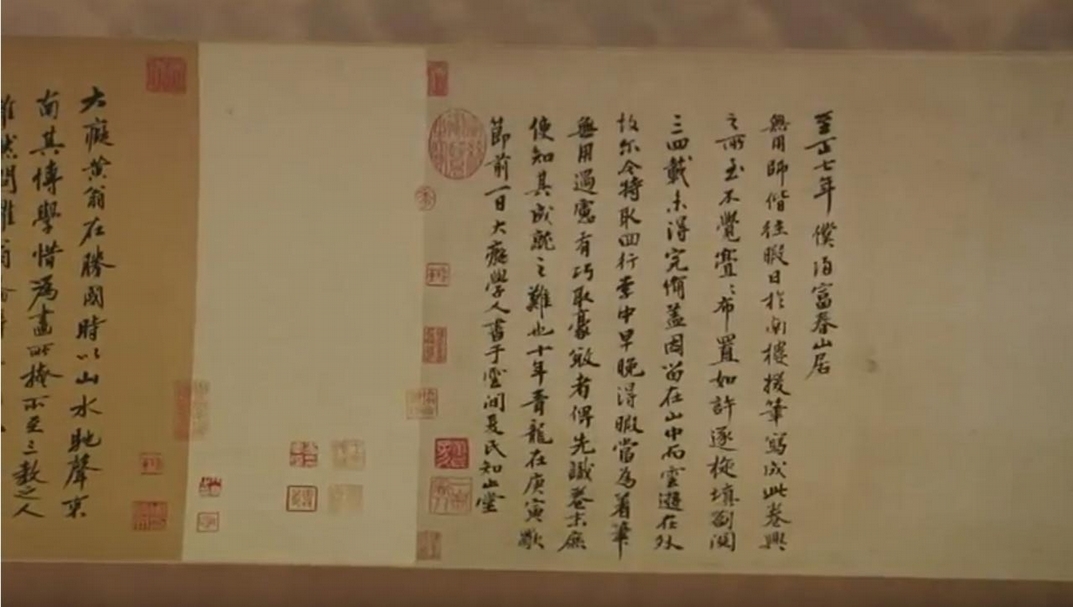 至正七年僕歸富春山居
無用師偕往暇日於南樓援筆寫成此卷興
之所至不覺亹〻布置如許逐旋填劄閱
三四載未得完備蓋因留在山中而雲遊在外
故尔今特取回行李中早晚得暇當為著筆
無用過慮有巧取豪敓者俾先識卷末庶
使知其成就之難也十年青龍在庚寅歜
節前一日大癡學人書于雲間夏氏知止堂
大癡黃翁在勝國時以山水馳聲東
南其博學惜為畫所掩所至三教之人
雜然問難翁